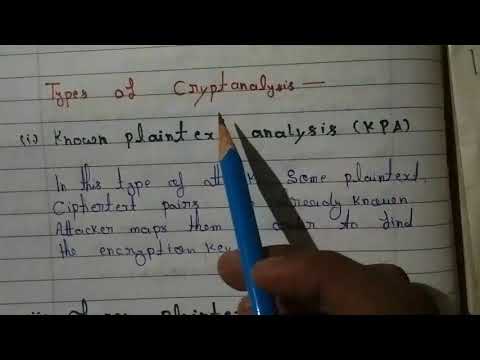 Types of Cryptanalysis —
(i) Known plaintex analysis (KPA)
In this type of Some plaintext,
Ciphertext pairs already known
Attacker maps them to find
the encryption key